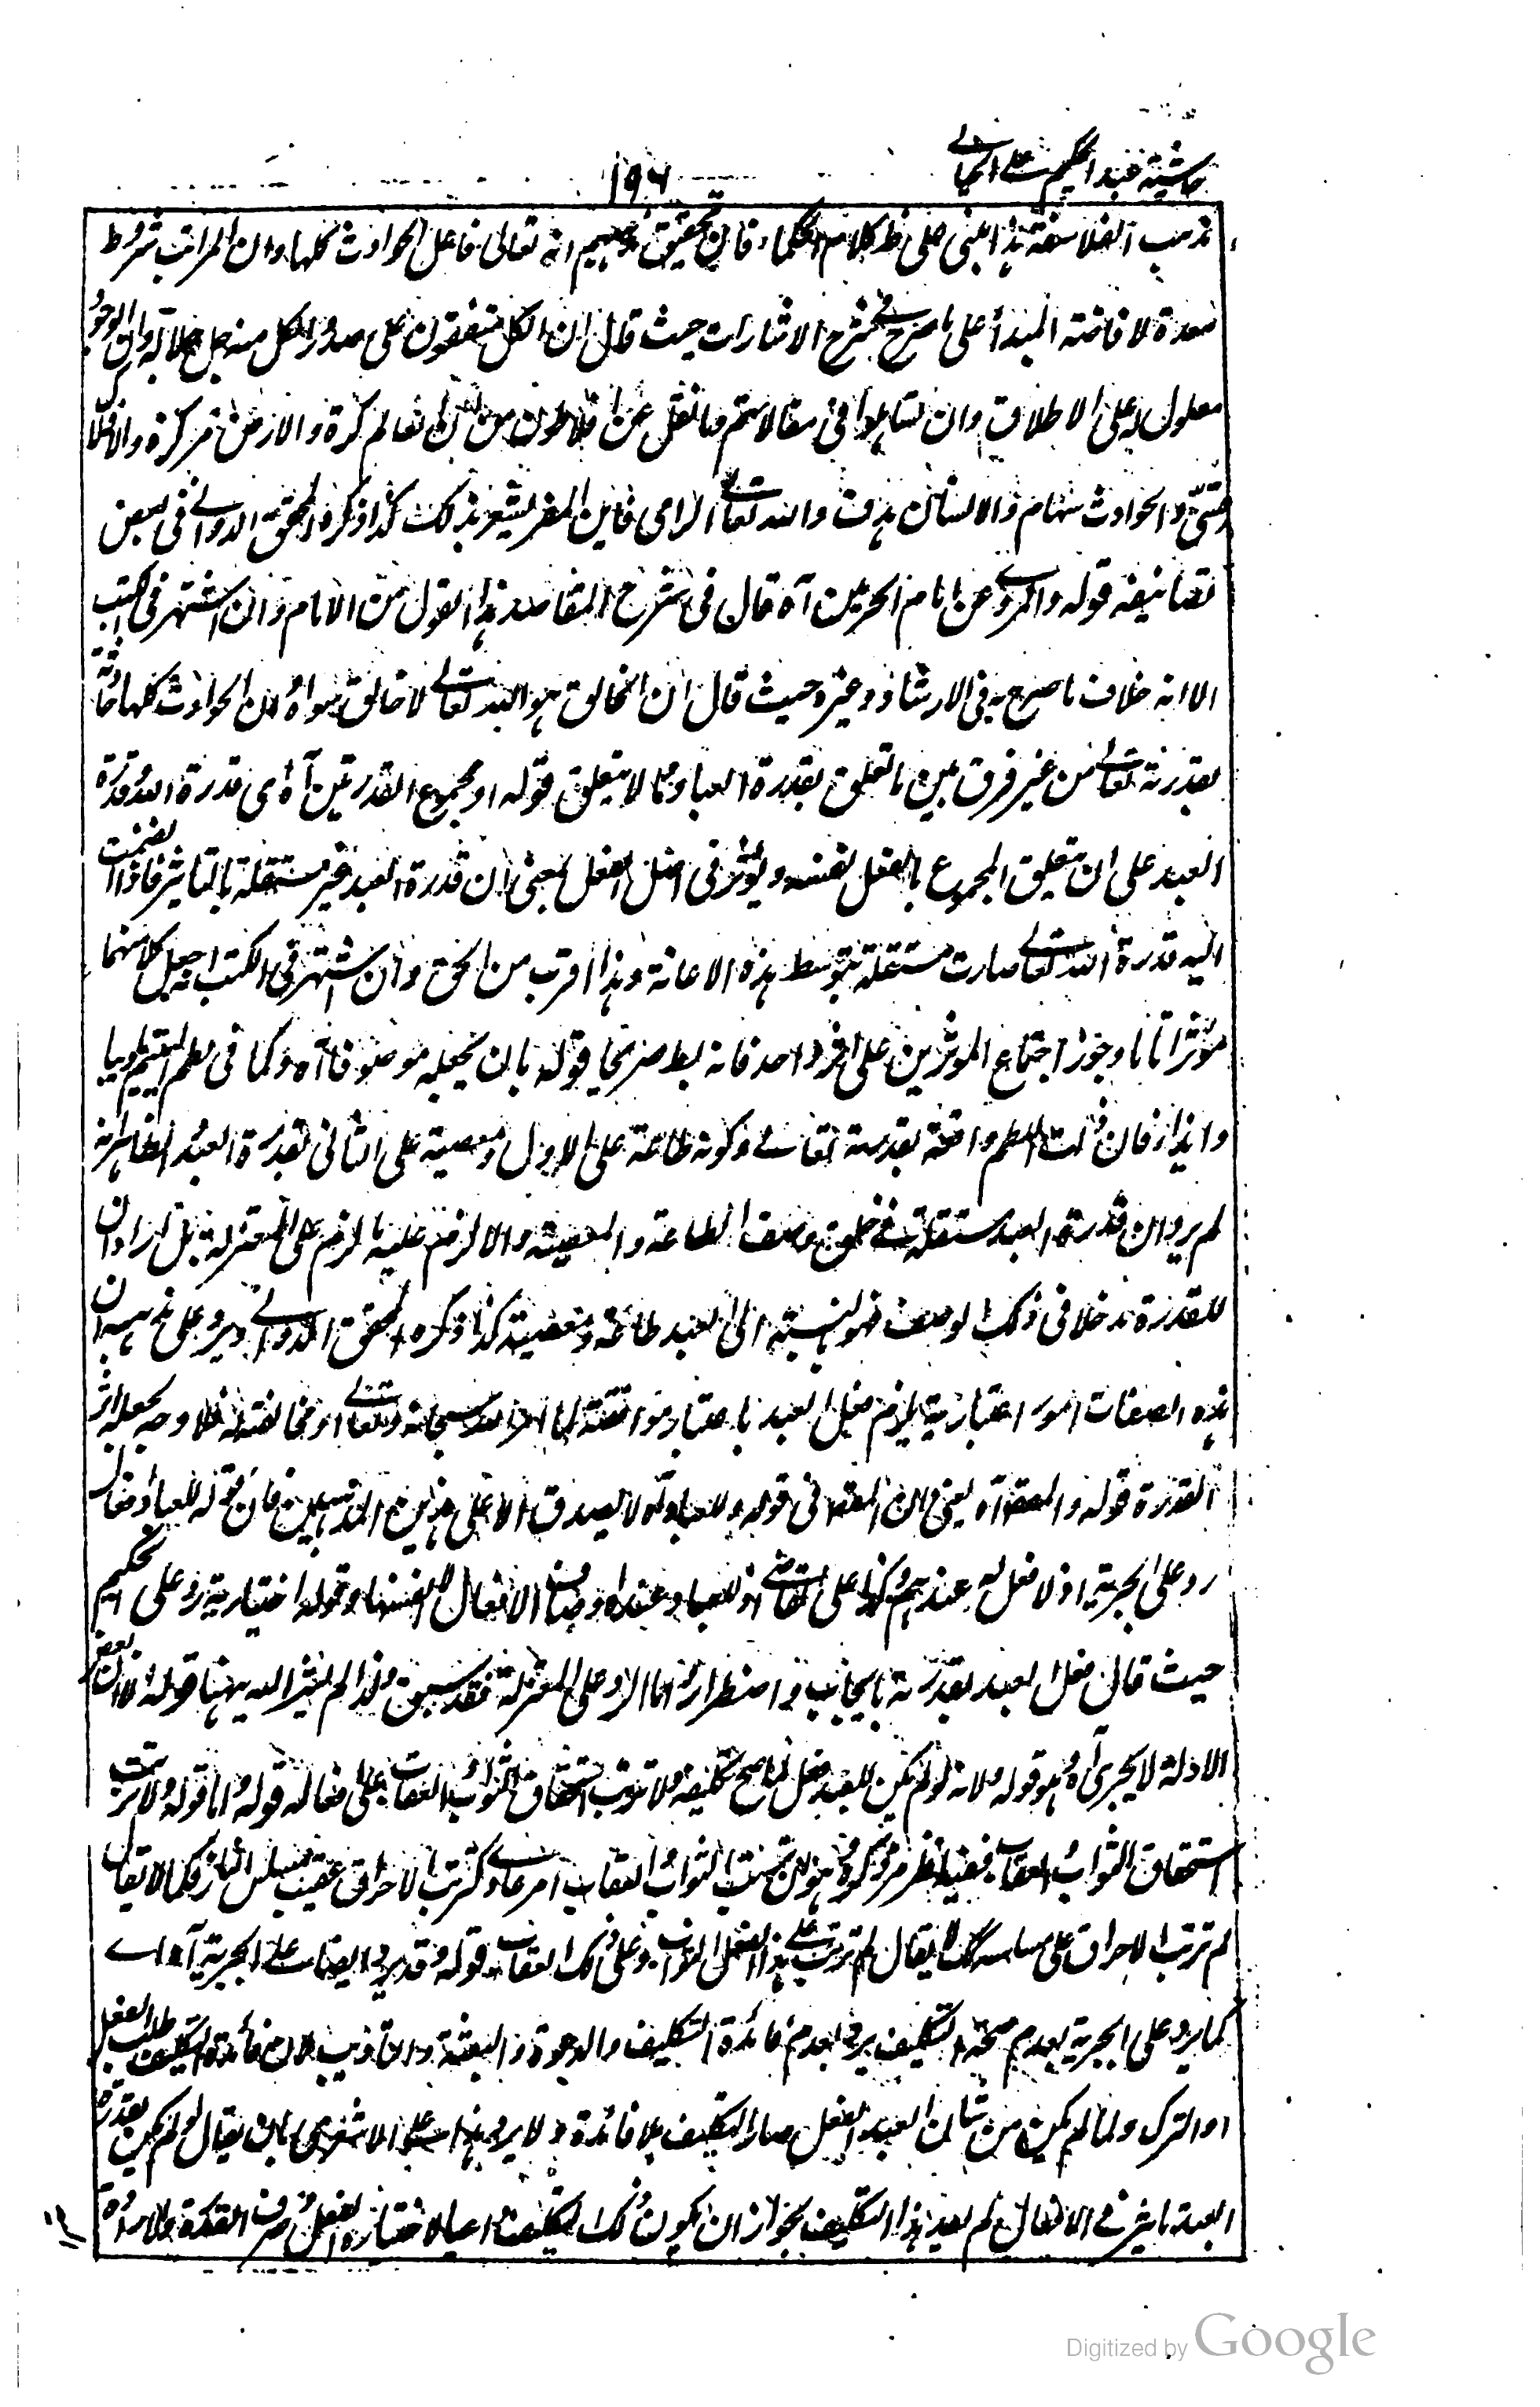 حاشية عبد الحكيم على الخيالى
١٩٦
مذهب الفلاسفة هذا مبنى على ظ كلام الحكماء فان تحقيق مذهبهم انه تعالى فاعل الحوادث كلها وان المراتب شروط
معدة لافاضة المبدأ على ما صرح فى شرح الاشارات حيث قال ان الكل متفقون على صدور الكل منه جل جلاله وان الوجود
معلول له على الاطلاق وان تساهلوا فى مقالاتهم وما نقل عن افلاطون من ان العالم كرة والارض مركزة والافلاك
قسىّ والحوادث سهام والانسان هدف والله تعالى الرامى فاين المفر يشعر بذلك كذا ذكره المحقق الدوانى فى بعض
تصانيفه قوله والمروى عن امام الحرمين آه قال فى شرح المقاصد هذا القول من الامام وان اشتهر فى الكتب
الا انه خلاف ما صرح به فى الارشاد وغيره حيث قال ان الخالق هو الله تعالى لا خالق سواه وان الحوادث كلها حادثة
بقدرته تعالى من غير فرق بين ما تعلق بقدرة العباد وما لا يتعلق قوله او مجموع القدرتين آه اى قدرة الله وقدرة
العبد على ان يتعلق المجموع بالفعل نفسه ويؤثر فى اصل الفعل بمعنى ان قدرة العبد غير مستقلة بالتاثير فاذا انضمت
اليه قدرة الله تعالى صارت مستقلة بتوسط هذه الاعانة وهذا اقرب من الحق وان اشتهر فى الكتب انه جعل كلا منهما
مؤثرا تاما وجوز اجتماع المؤثرين على اثر واحد فانه بط صريحا قوله بان يجعله موصوفا آه وكما فى لطم اليتيم تاديبا
وايذاء فان ذات اللطم واقعة بقدرته تعالى وكونه طاعة على الاول ومعصية على الثانى بقدرة العبد الظاهر انه
لم يرد ان قدرة العبد مستقلة فى خلق وصف الطاعة والمعصية والا لزم عليه ما لزم على المعتزلة بل اراد ان
للقدرة مدخلا فى ذلك الوصف فهو بالنسبة الى العبد طاعة ومعصية كذا ذكره المحقق الدوانى ويرد على مذهبه ان
هذه الصفات امور اعتبارية يلزم فعل العبد باعتبار موافقته لما امر الله سبحانه وتعالى او مخالفته له فلا وجه لجعله اثر
القدرة قوله والمقص آه يعنى ان المقص فى قوله وللعباد آه لا يصدق الا على هذين المذهبين فان قوله للعباد افعال
رد على الجبرية اذ لا فعل له عندهم وكذا على القاضى اذ للعباد عنده اوصاف الافعال لا نفسها وقوله اختيارية رد على الحكيم
حيث قال فعل العبد بقدرته بايجاب واضطرار واما الرد على المعتزلة فقد سبق ولذا لم يشر اليه ههنا قوله الا ان بعض
الادلة لا يجرى آه وهو قوله ولانه لو لم يكن للعبد فعل لما صح تكليفه ولا ترتب استحقاق الثواب والعقاب على افعاله قوله واما قوله ولا ترتب
استحقاق الثواب والعقاب ففيه نظر مر ذكره وهو ان ترتب الثواب والعقاب امر عادى كترتب الاحراق عقيب مسيس النار فكما لا يقال
لم ترتب الاحراق على مساسه كذلك لا يقال لم ترتب على هذا الفعل الثواب وعلى ذلك العقاب قوله وقد يرد ايضا على الجبرية آه اے
كما يرد على الجبرية بعدم صحة التكليف يرد بعدم فائدة التكليف والدعوة والبعثة والتاديب لان فائدة التكليف طلب الفعل
او الترك ولما لم يكن من شان العبد الفعل صار التكليف بلا فائدة ولا يرد هذا على الاشعرى بان يقال لو لم يكن بقدرة
العبد تاثير فى الافعال لم يفد هذا التكليف لجواز ان يكون ذلك التكليف داعيا لاختياره الفعل وصرف القدرة والارادة